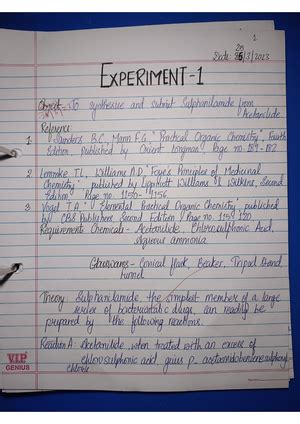 1
Date: 25/3/2023
EXPERIMENT-1
Object:- To synthesize and submit Sulphanilamide from
Acetanilide.
Reference:
1. Saunders B.C, Mann F.G, "Practical Organic Chemistry", Fourth
Edition, published by Orient longman, Page no. 189-182
2. Lemmke T.L, Williams D.A "Foye's Principles of Medicinal
Chemistry", published by Lippincott Williams & Wilkins, Second
Edition, Page no. 1150-1156
3. Vogel T.A. "Elemental Practical Organic Chemistry, published
by CBS Publishers, Second Edition, Page no. 115-120
Requirements: Chemicals - Acetanilide, Chlorosulphonic Acid,
Aqueous ammonia
Glasswares - Conical flask, Beaker, Tripod Stand,
funnel
Theory: Sulphanilamide, the simplest member of a large
series of bacteriostatic drugs, can readily be
prepared by the following reactions.
Reaction A: Acetanilide, when treated with an excess of
chlorosulphonic acid gives p-acetamidobenzenesulphonyl
chloride
VIP
GENIUS